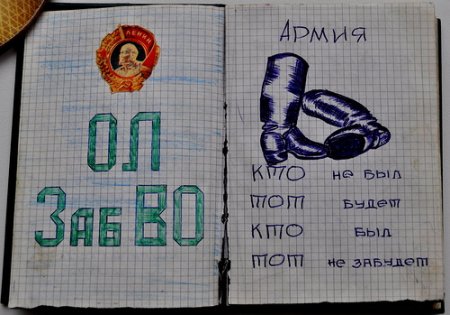 ЛЕНИН
ОЛ
ЗабВО
АРМИЯ
КТО НЕ БЫЛ
ТОТ БУДЕТ
КТО БЫЛ
ТОТ НЕ ЗАБУДЕТ